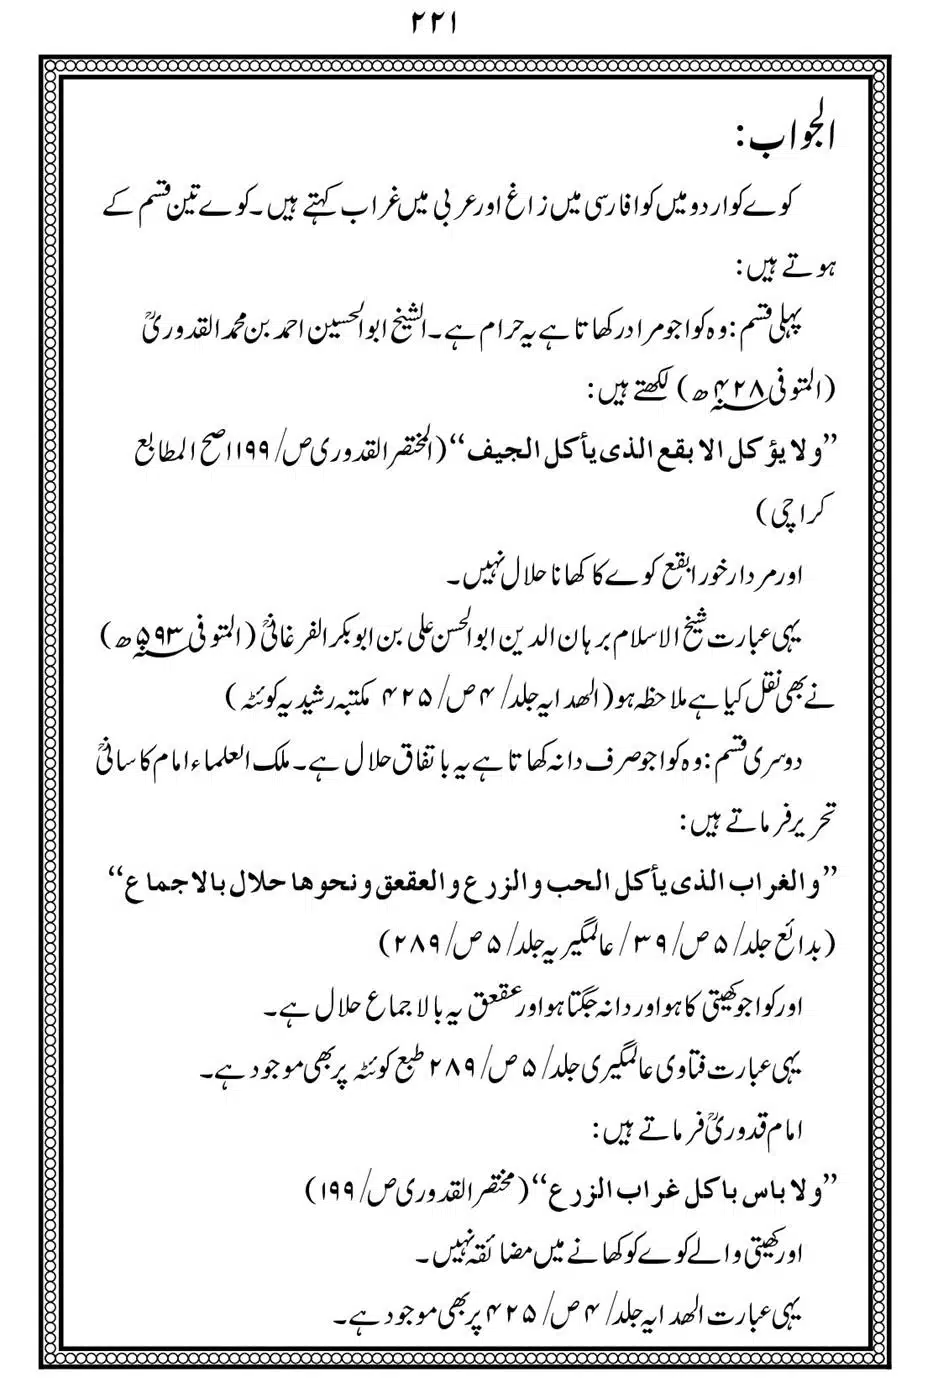 ۲۲۱
الجواب:
کوے کو اردو میں کوا فارسی میں زاغ اور عربی میں غراب کہتے ہیں۔ کوے تین قسم کے
ہوتے ہیں:
پہلی قسم: وہ کوا جو مرادر کھاتا ہے یہ حرام ہے۔ الشیخ ابوالحسین احمد بن محمد القدوریؒ
(المتوفی ۴۲۸ھ) لکھتے ہیں:
”ولا یؤکل الابقع الذی یأکل الجیف“ (المختصر القدوری ص/۱۹۹ اصح المطابع
کراچی)
اور مردار خور ابقع کوے کا کھانا حلال نہیں۔
یہی عبارت شیخ الاسلام برہان الدین ابوالحسن علی بن ابوبکر الفرغانیؒ (المتوفی ۵۹۳ھ)
نے بھی نقل کیا ہے ملاحظہ ہو (الھدایہ جلد/۴ ص/۴۲۵ مکتبہ رشیدیہ کوئٹہ)
دوسری قسم: وہ کوا جو صرف دانہ کھاتا ہے یہ باتفاق حلال ہے۔ ملک العلماء امام کاسانیؒ
تحریر فرماتے ہیں:
”والغراب الذی یأکل الحب والزرع والعقعق ونحوھا حلال بالاجماع“
(بدائع جلد/۵ ص/۳۹/ عالمگیریہ جلد/۵ ص/۲۸۹)
اور کوا جو کھیتی کا ہو اور دانہ چگتا ہو اور عقعق یہ بالاجماع حلال ہے۔
یہی عبارت فتاوی عالمگیری جلد/۵ ص/۲۸۹ طبع کوئٹہ پر بھی موجود ہے۔
امام قدوریؒ فرماتے ہیں:
”ولا باس باکل غراب الزرع“ (مختصر القدوری ص/۱۹۹)
اور کھیتی والے کوے کو کھانے میں مضائقہ نہیں۔
یہی عبارت الھدایہ جلد/۴ ص/۴۲۵ پر بھی موجود ہے۔